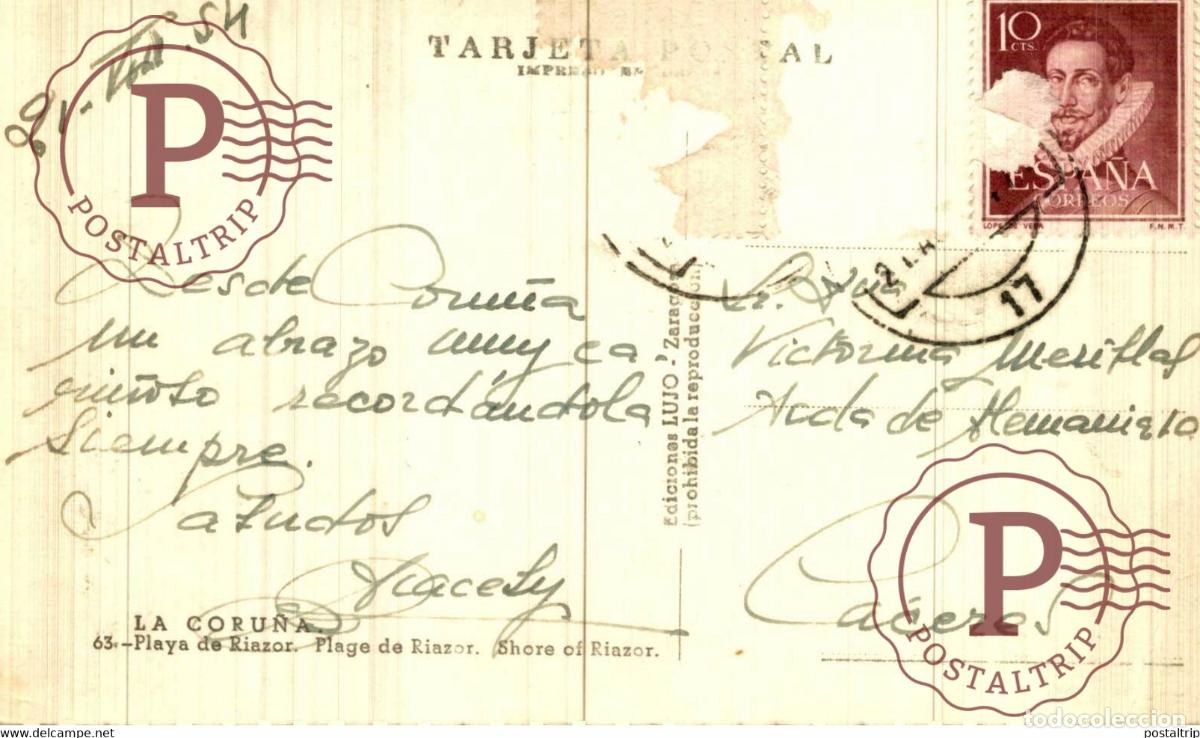 21-VIII-54
TARJETA POSTAL
10
CTS.
ESPAÑA
CORREOS
LOPE DE VEGA
F.N.M.T.
17
P
POSTALTRIP
Desde Coruña
un abrazo muy ca
riñoso recordándola
siempre.
Saludos
Aracely
LA CORUÑA.
63.-Playa de Riazor. Plage de Riazor. Shore of Riazor.
Ediciones LUJO'- Zaragoza
(prohibida la reproducción)
Sr. Dña
Victorina
Avda de Alemania 10
Cáceres
P
POSTALTRIP
todocoleccion
www.delcampe.net
postaltrip